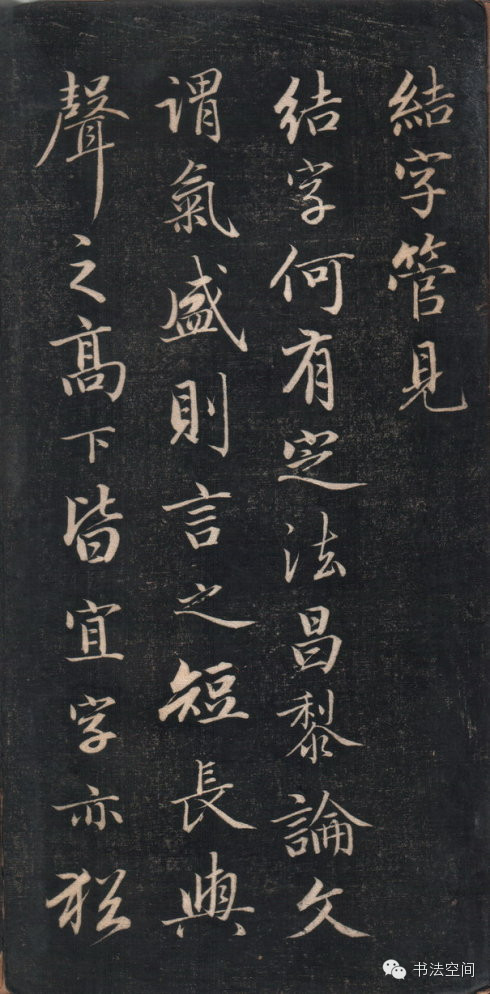 結字管見
結字何有定法昌黎論文
謂氣盛則言之短長與
聲之高下皆宜字亦猶
书法空间